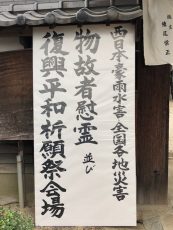 西日本豪雨水害 全国各地災害
物故者慰霊 並び
復興平和祈願祭会場